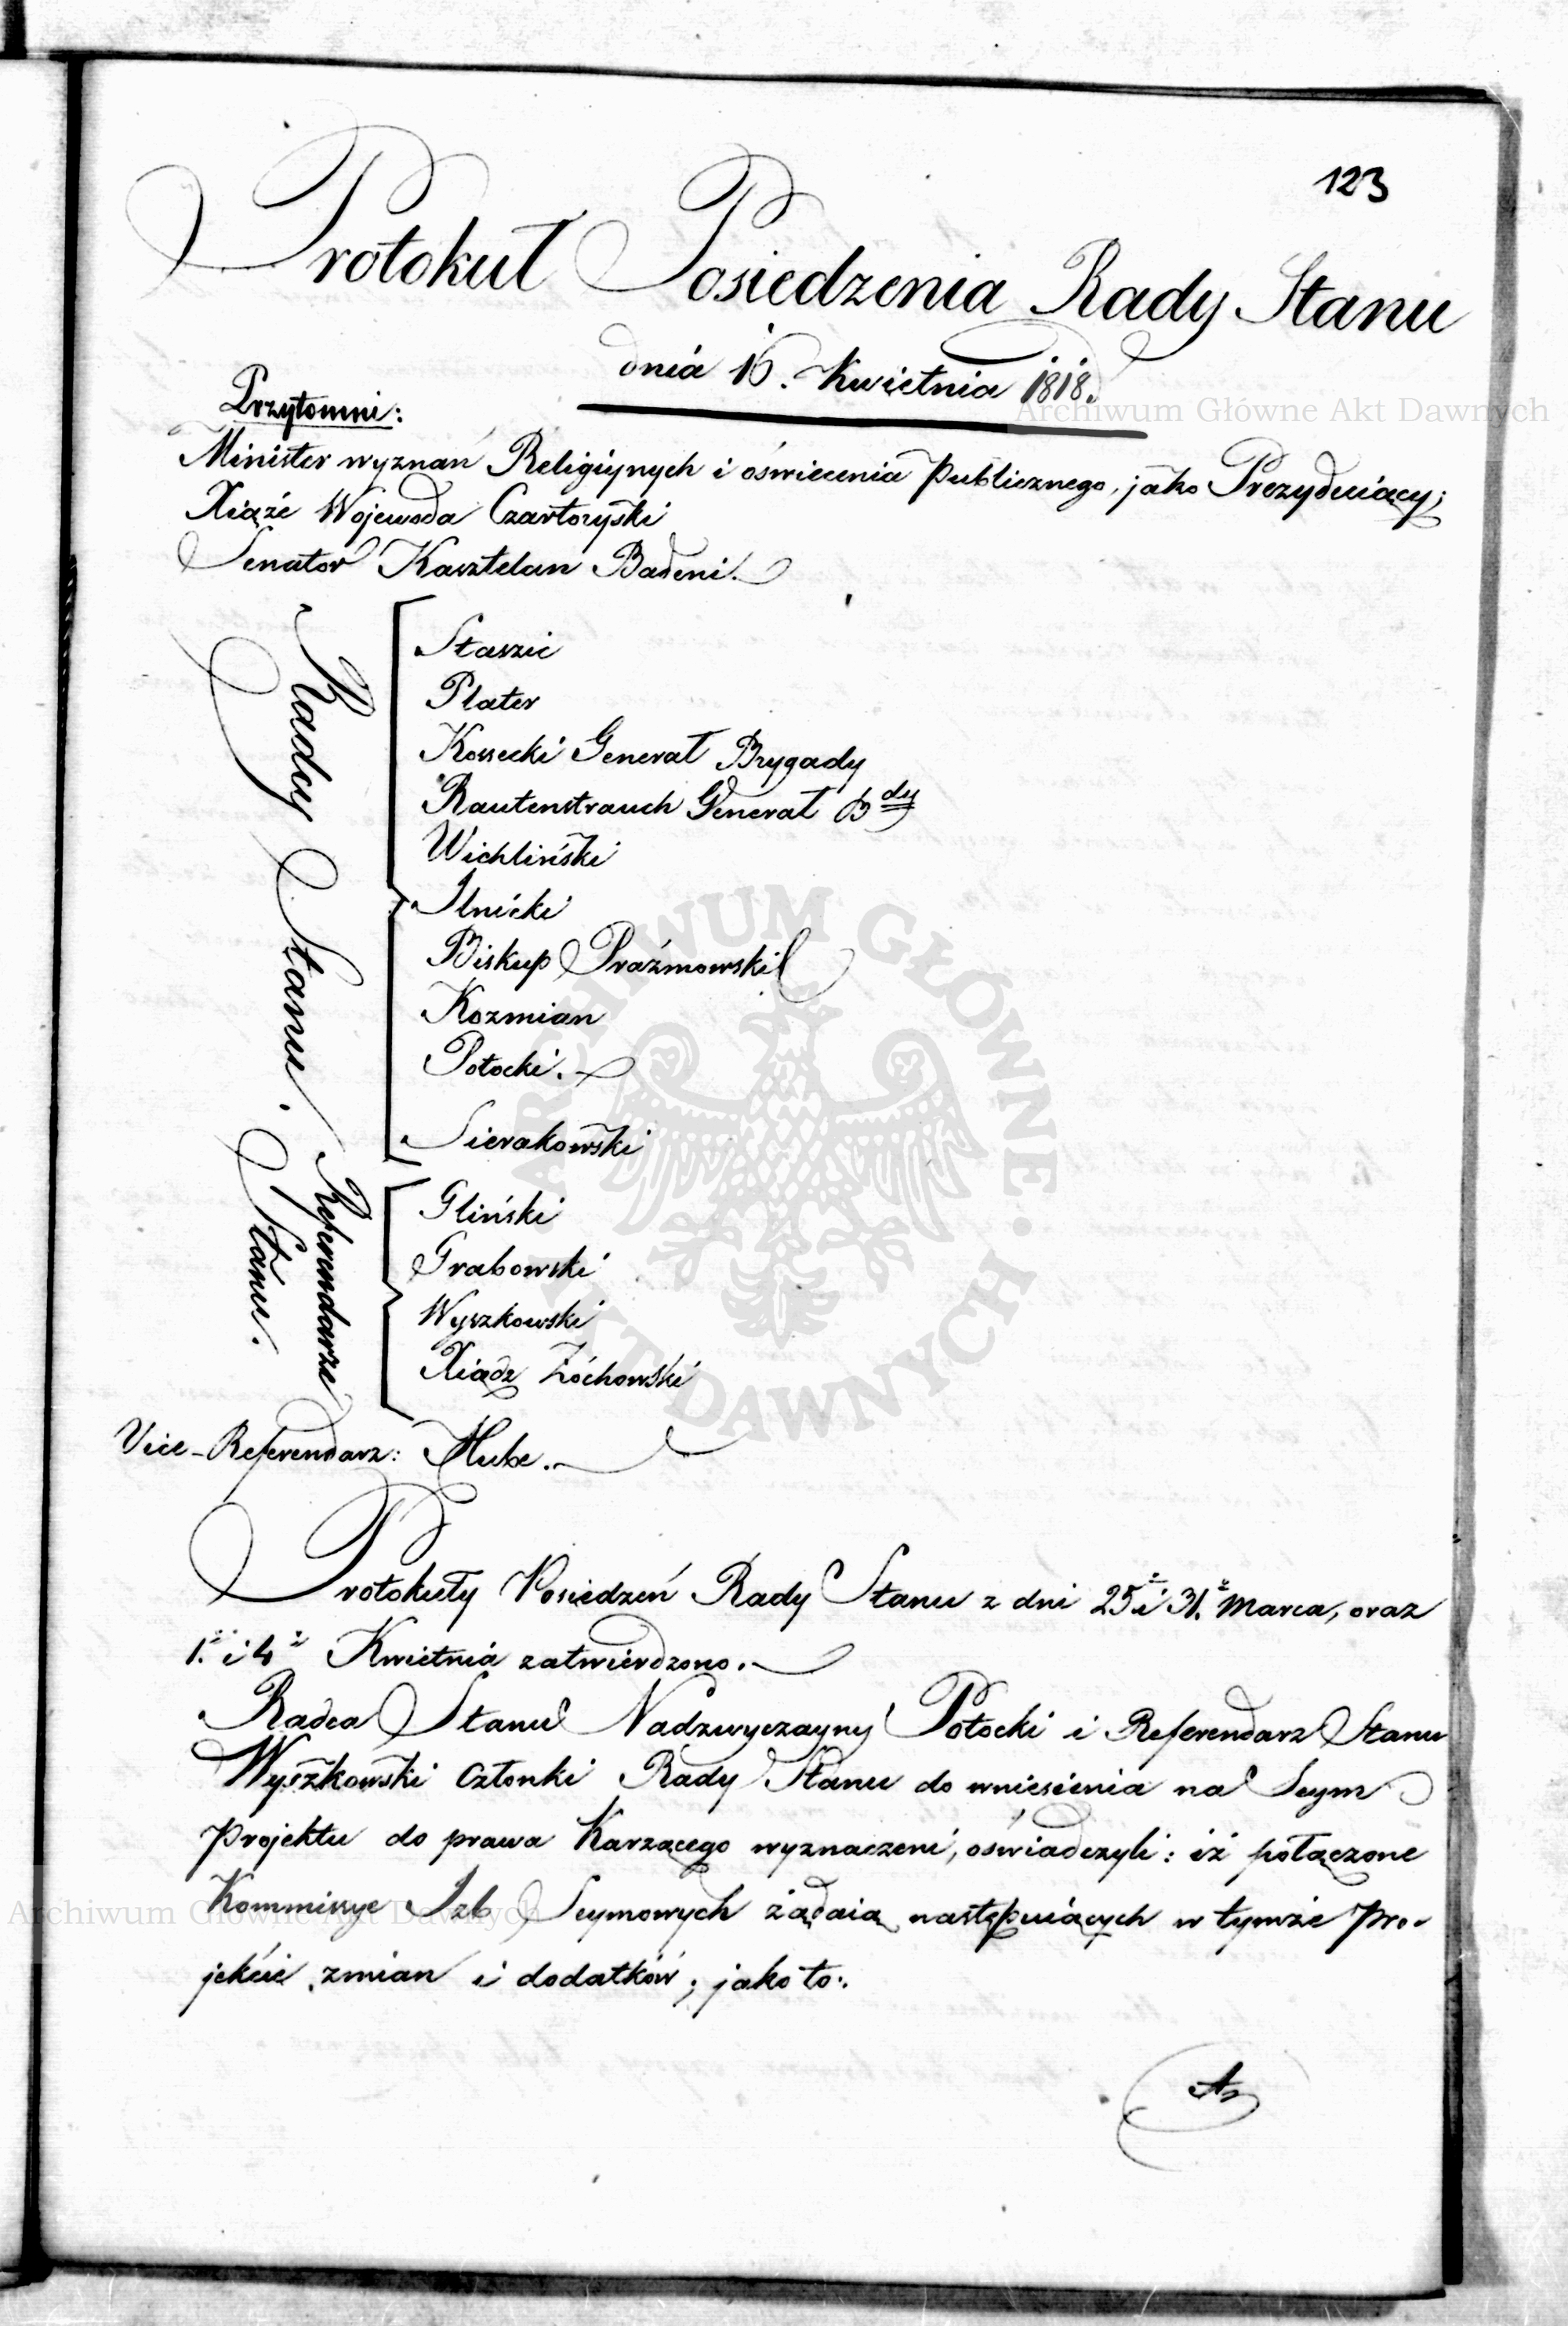 123
Protokuł Posiedzenia Rady Stanu
dnia 16. Kwietnia 1818.
Przytomni:
Minister wyznań Religiynych i oświecenia Publicznego, jako Prezyduiący;
Xiąże Wojewoda Czartoryski
Senator Kasztelan Badeni.
Radcy Stanu.
Staszic
Plater
Kossecki Generał Brygady
Rautenstrauch Generał Bdy
Wichliński
Ilnicki
Biskup Prażmowski
Kozmian
Potocki.
Sierakowski
Referendarze Stanu.
Gliński
Grabowski
Wyszkowski
Xiądz Żóchowski
Vice-Referendarz: Hube.
Protokuły Posiedzeń Rady Stanu z dni 25 i 31. Marca, oraz
1. i 4 Kwietnia zatwierdzono.
Radca Stanu Nadzwyczayny Potocki i Referendarz Stanu
Wyszkowski Członki Rady Stanu do wniesienia na Seym
Projektu do prawa Karzącego wyznaczeni, oświadczyli: iż połączone
Kommissye Izb Seymowych żądaią następuiących w tymże Pro-
jekcie zmian i dodatków; jako to:
Archiwum Główne Akt Dawnych
Archiwum Główne Akt Dawnych
ARCHIWUM GŁÓWNE · AKT DAWNYCH ·